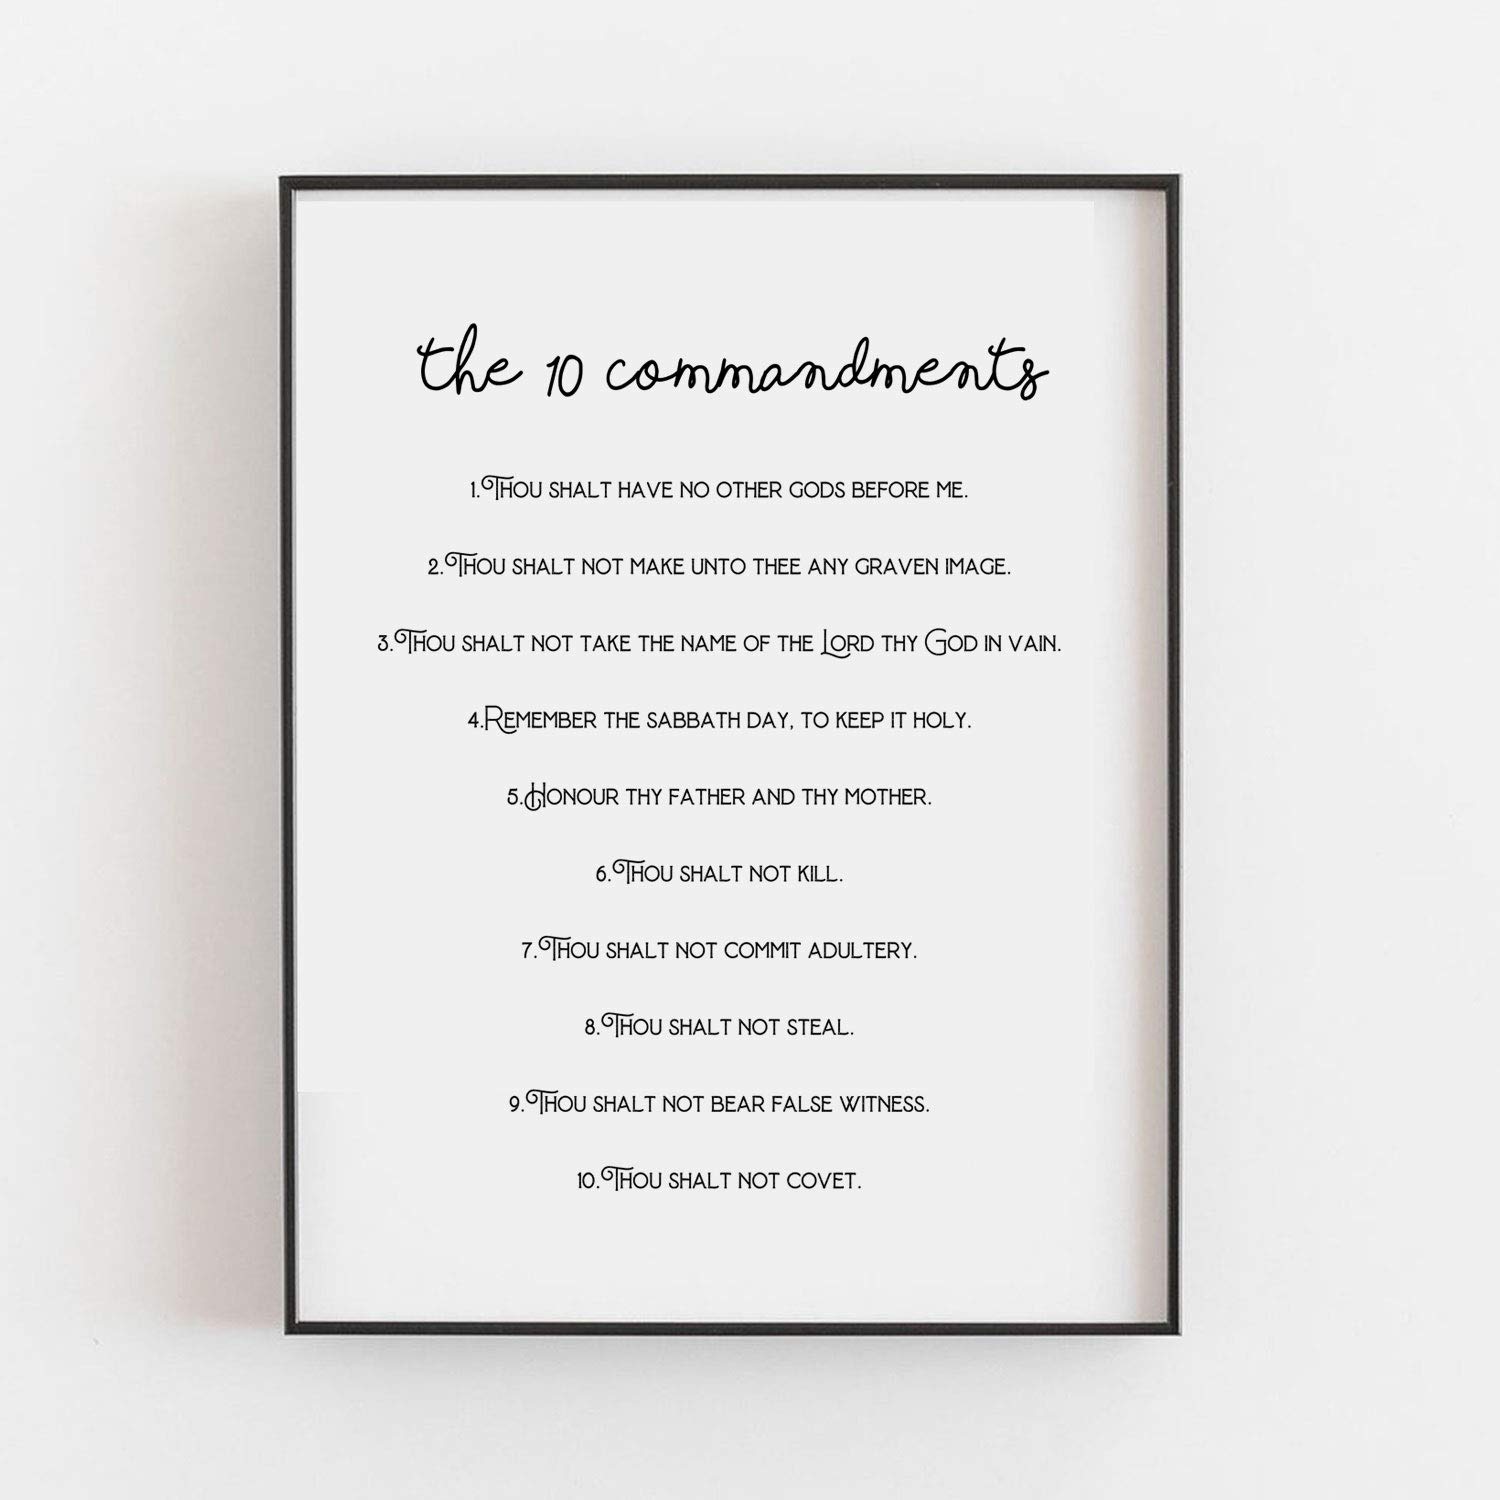 the 10 commandments
1.Thou shalt have no other gods before me.
2.Thou shalt not make unto thee any graven image.
3.Thou shalt not take the name of the Lord thy God in vain.
4.Remember the sabbath day, to keep it holy.
5.Honour thy father and thy mother.
6.Thou shalt not kill.
7.Thou shalt not commit adultery.
8.Thou shalt not steal.
9.Thou shalt not bear false witness.
10.Thou shalt not covet.